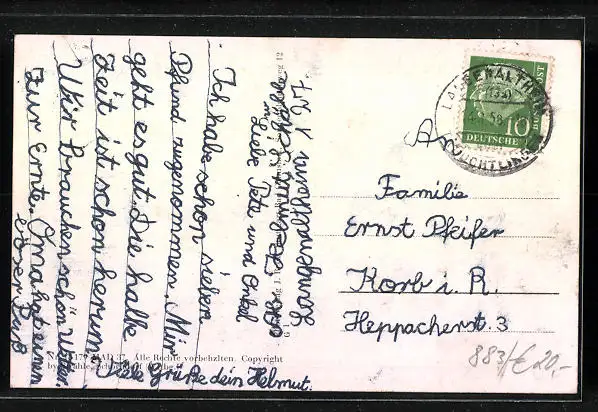 Langenaltheim 1 27.
Helmut
Liebe Dote und Onkel
Ich habe schon sieben
Pfund zugenommen. Mir
geht es gut. Die halbe
Zeit ist schon herum
Wir brauchen schön Wetter
zur Ernte. Oma hat einen
Viele Grüße dein Helmut.
Alle Rechte vorbehalten. Copyright
by
DEUTSCHE
10
BUNDESPOST
Familie
Ernst Pfeifer
Korb i. R.
Heppacherst. 3
883/€20,-